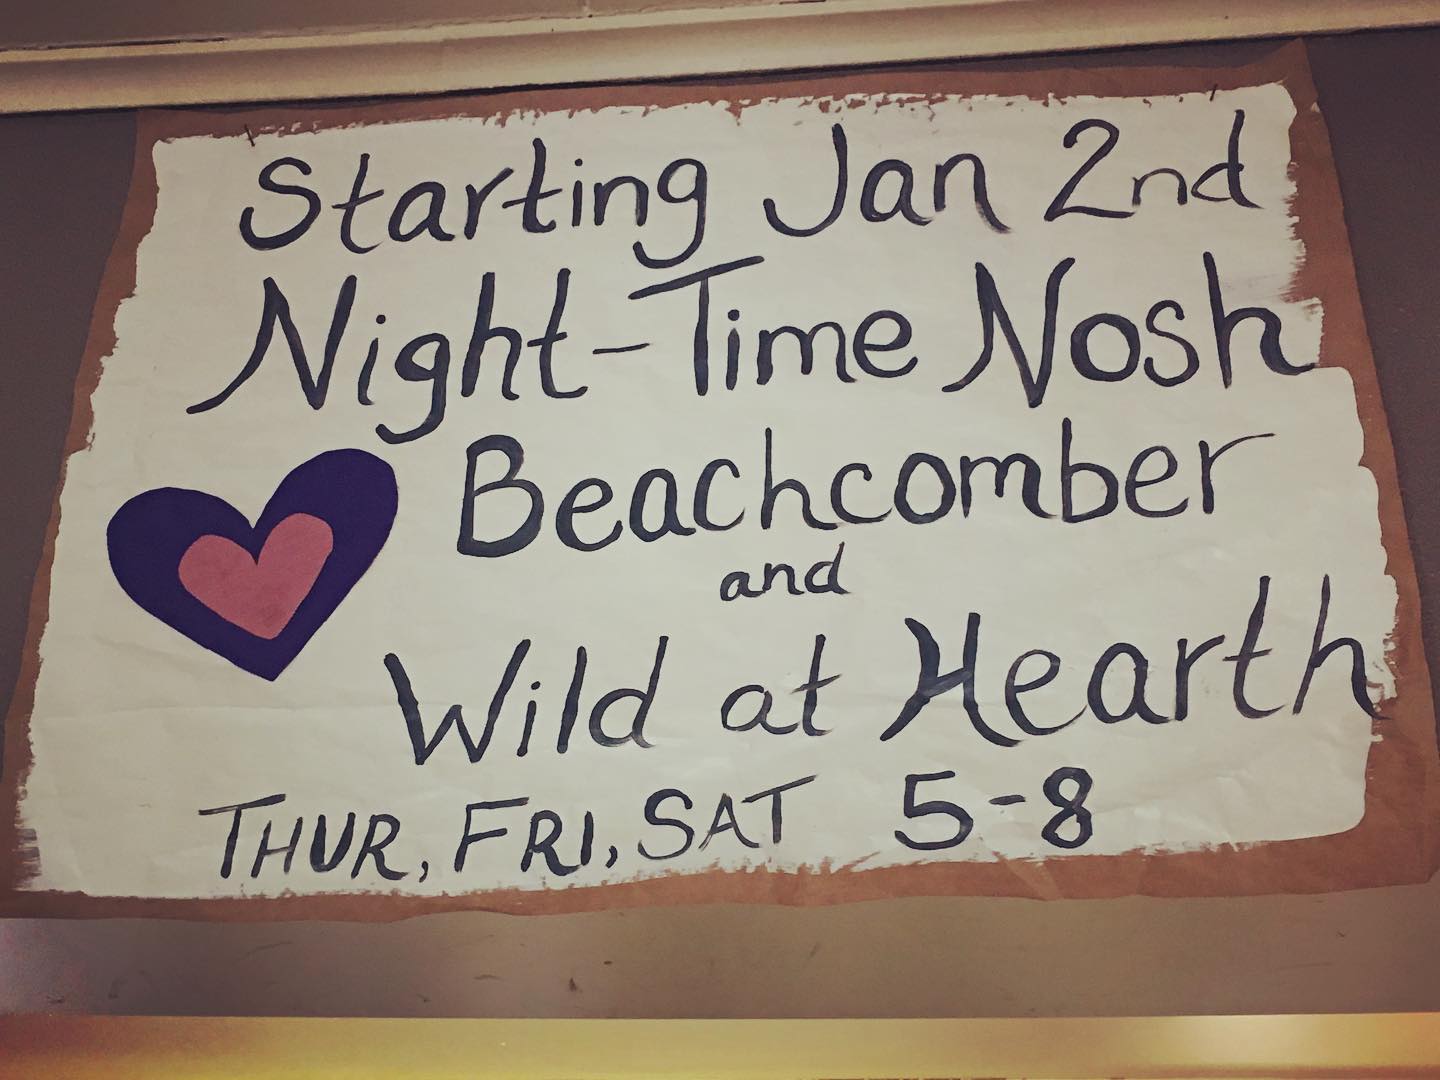 Starting Jan 2nd
Night-Time Nosh
Beachcomber
and
Wild at Hearth
THUR, FRI, SAT 5-8